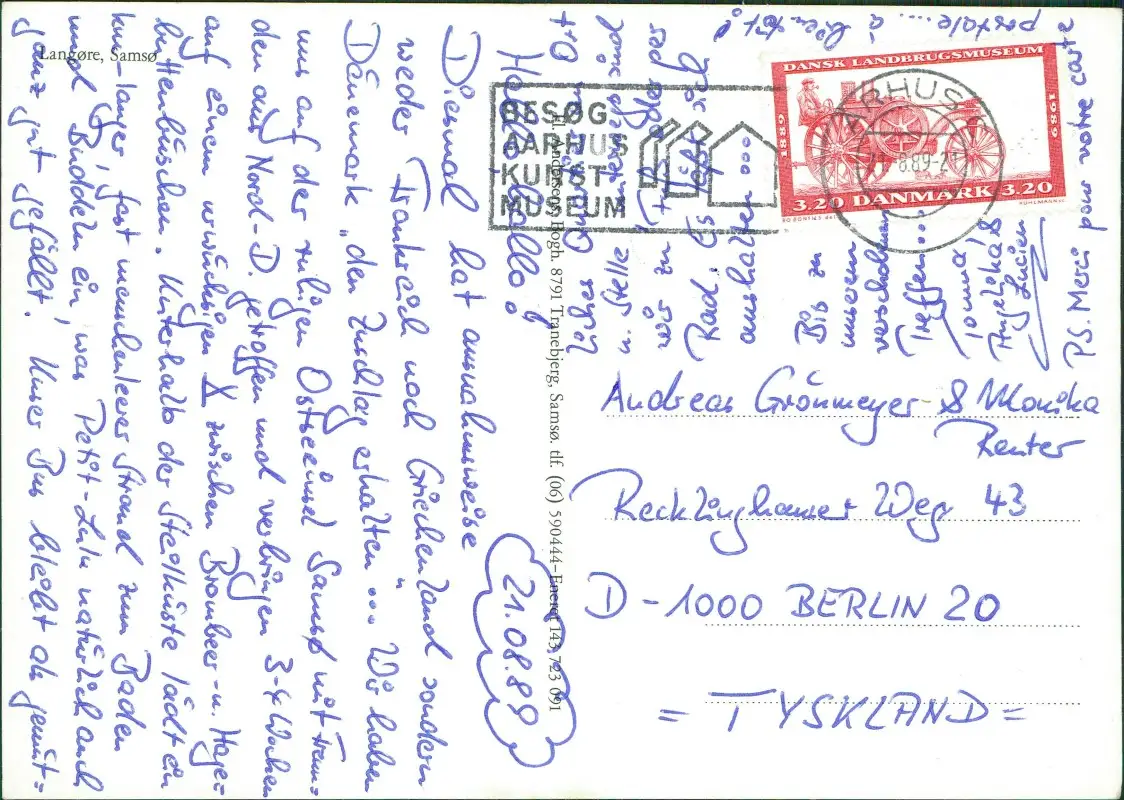 Langøre, Samsø
21.08.89
Hallo, hallo!
Diesmal hat ausnahmsweise
weder Frankreich noch Griechenland sondern
Dänemark „den Zuschlag erhalten“... Wir haben
uns auf der ruhigen Ostseeinsel Samsø mit Freun-
den aus Nord-D. getroffen und verbringen 3-4 Wochen
auf einem urwüchsigen X zwischen Brombeer- u. Hage-
buttenbüschen. Unterhalb der Steilküste lädt ein
km-langer, fast menschenleerer Strand zum Baden
und Buddeln ein, was Petit-Lulu natürlich auch
ganz gut gefällt. Unser Bus bleibt als gemüt-
Ort
wir zu oder per
Rad. Es
aushalten ...
Bis zu
unserem
verschobenen
Treffen...
Angelika &
Lucien
P.S. Merci pour votre carte
postale.... à bientôt!
H. Andersens Bogh. 8791 Tranebjerg, Samsø. tlf. (06) 590444 – Eneret 143,723 091
BESØG
AARHUS
KUNST
MUSEUM
DANSK LANDBRUGSMUSEUM
1889
1989
3.20 DANMARK 3.20
ARHUS C
8.89-21
Andreas Grönmeyer & Monika
Renter
Recklinghauser Weg 43
D - 1000 BERLIN 20
= TYSKLAND =